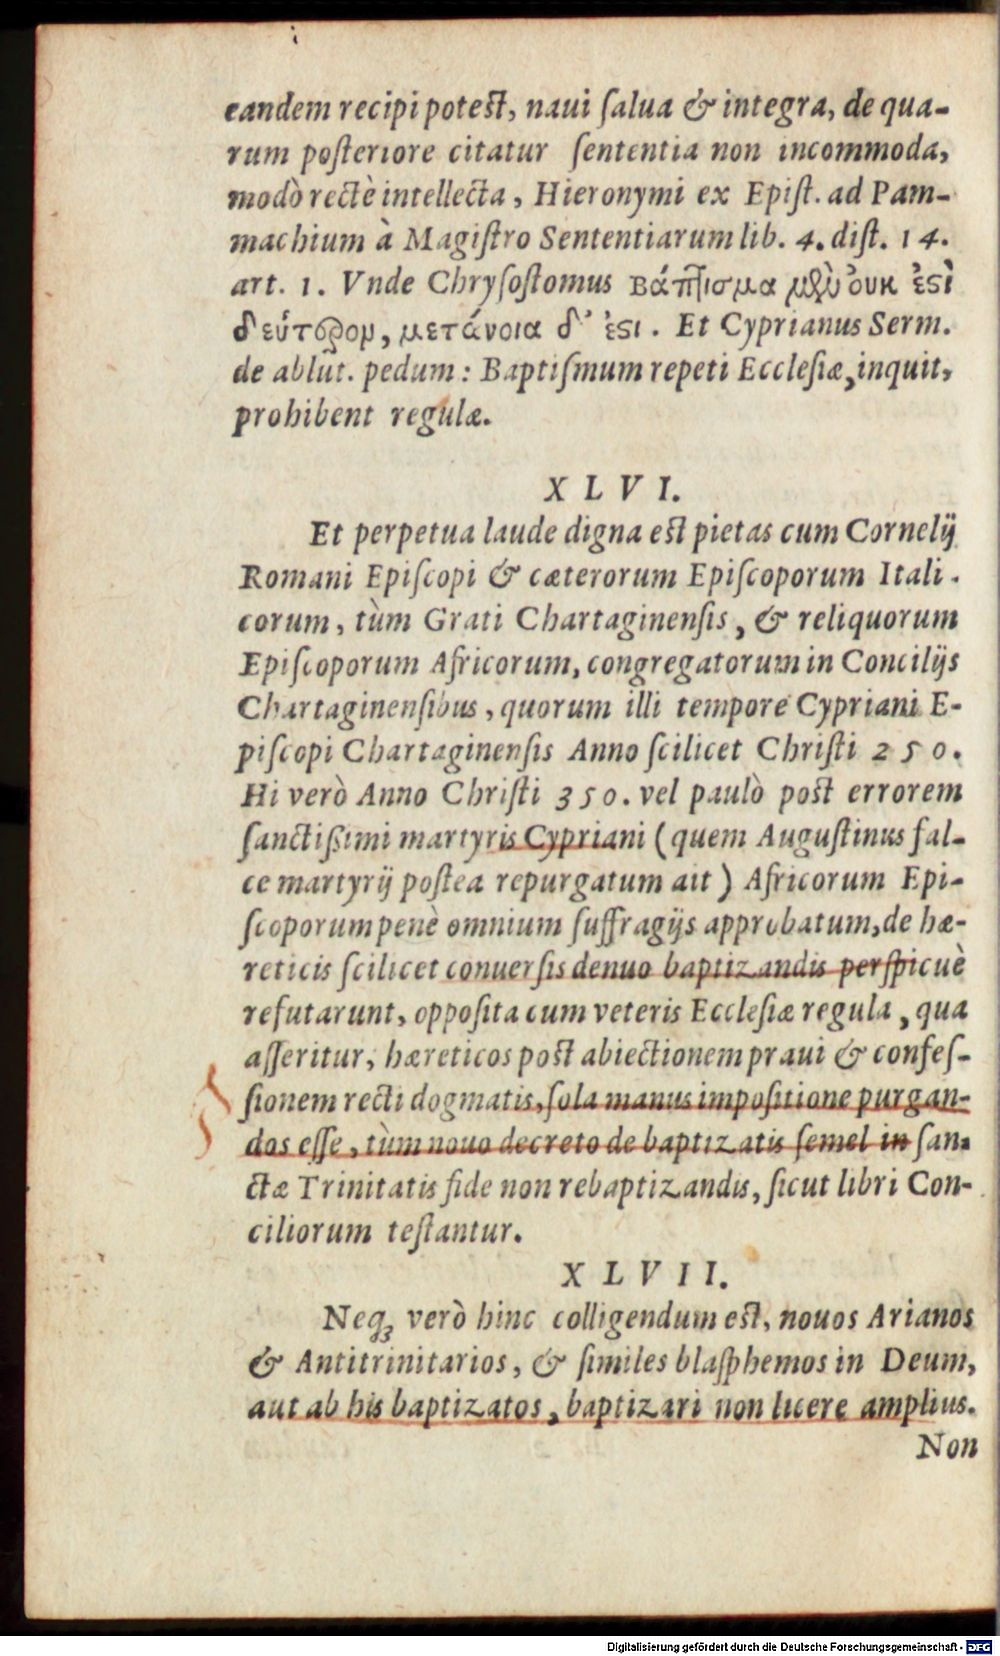 eandem recipi potest, naui ſalua & integra, de qua-
rum poſteriore citatur ſententia non incommoda,
modò rectè intellecta, Hieronymi ex Epiſt. ad Pam-
machium à Magiſtro Sententiarum lib. 4. diſt. 14.
art. 1. Vnde Chryſoſtomus βάπτισμα μὲν οὐκ ἐστὶ
δεύτερον, μετάνοια δ' ἐστι. Et Cyprianus Serm.
de ablut. pedum: Baptiſmum repeti Eccleſiæ, inquit,
prohibent regulæ.
XLVI.
Et perpetua laude digna est pietas cum Cornelij
Romani Epiſcopi & cæterorum Epiſcoporum Itali-
corum, tùm Grati Chartaginenſis, & reliquorum
Epiſcoporum Africorum, congregatorum in Concilijs
Chartaginenſibus, quorum illi tempore Cypriani E-
piſcopi Chartaginenſis Anno ſcilicet Chriſti 250.
Hi verò Anno Chriſti 350. vel paulò post errorem
ſanctißimi martyris Cypriani (quem Auguſtinus fal-
ce martyrij poſtea repurgatum ait) Africorum Epi-
ſcoporum penè omnium ſuffragijs approbatum, de hæ-
reticis ſcilicet conuerſis denuo baptizandis perſpicuè
refutarunt, oppoſita cum veteris Eccleſiæ regula, qua
aſſeritur, hæreticos post abiectionem praui & confeſ-
ſionem recti dogmatis, ſola manus impoſitione purgan-
dos eſſe, tùm nouo decreto de baptizatis ſemel in ſan-
ctæ Trinitatis fide non rebaptizandis, ſicut libri Con-
ciliorum teſtantur.
XLVII.
Neqꝫ verò hinc colligendum est, nouos Arianos
& Antitrinitarios, & ſimiles blaſphemos in Deum,
aut ab his baptizatos, baptizari non licere amplius.
Non
Digitalisierung gefördert durch die Deutsche Forschungsgemeinschaft - DFG